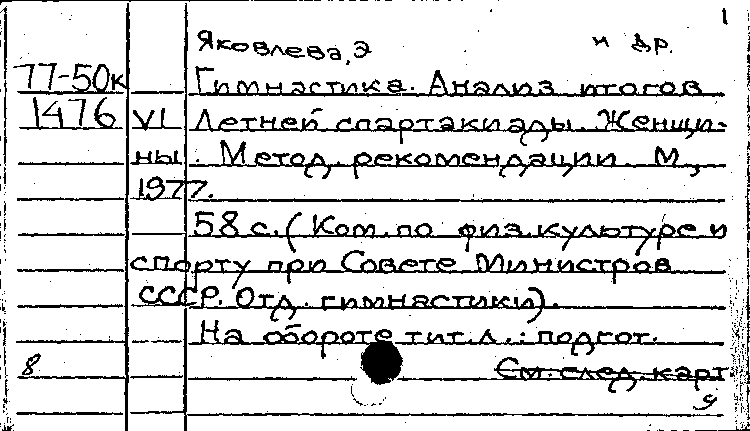 1
Яковлева, Э и др.
77-50к Гимнастика. Анализ итогов
1476 VI Летней спартакиады. Женщи-
ны. Метод. рекомендации М.,
1977.
58 с. (Ком. по физ. культуре и
спорту при Совете Министров
СССР. Отд. гимнастики).
На обороте тит. л.: подгот.
8 См. след. карт.
9